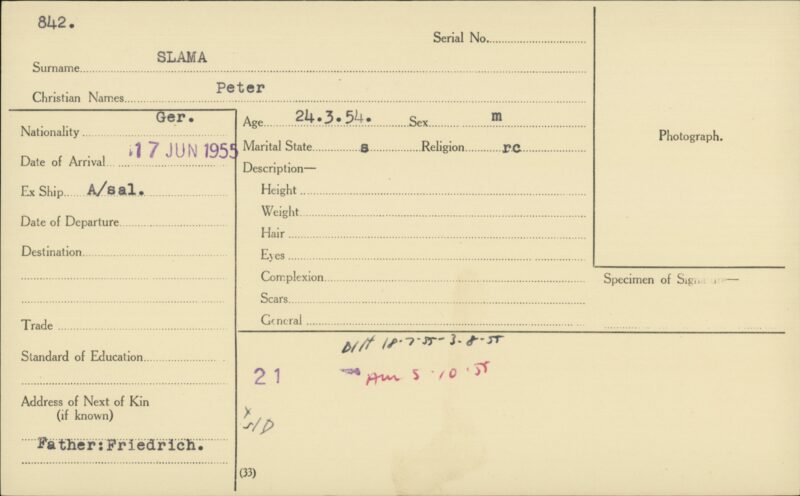 842.
Serial No.
Surname SLAMA
Christian Names Peter
Nationality Ger.
Date of Arrival 17 JUN 1955
Ex Ship A/sal.
Date of Departure
Destination
Trade
Standard of Education
Address of Next of Kin
(if known)
Father:Friedrich.
Age 24.3.54. Sex m
Marital State s Religion rc
Description—
Height
Weight
Hair
Eyes
Complexion
Scars
General
Photograph.
Specimen of
18-7-55-3-8-55
21
5-10-55
(33)